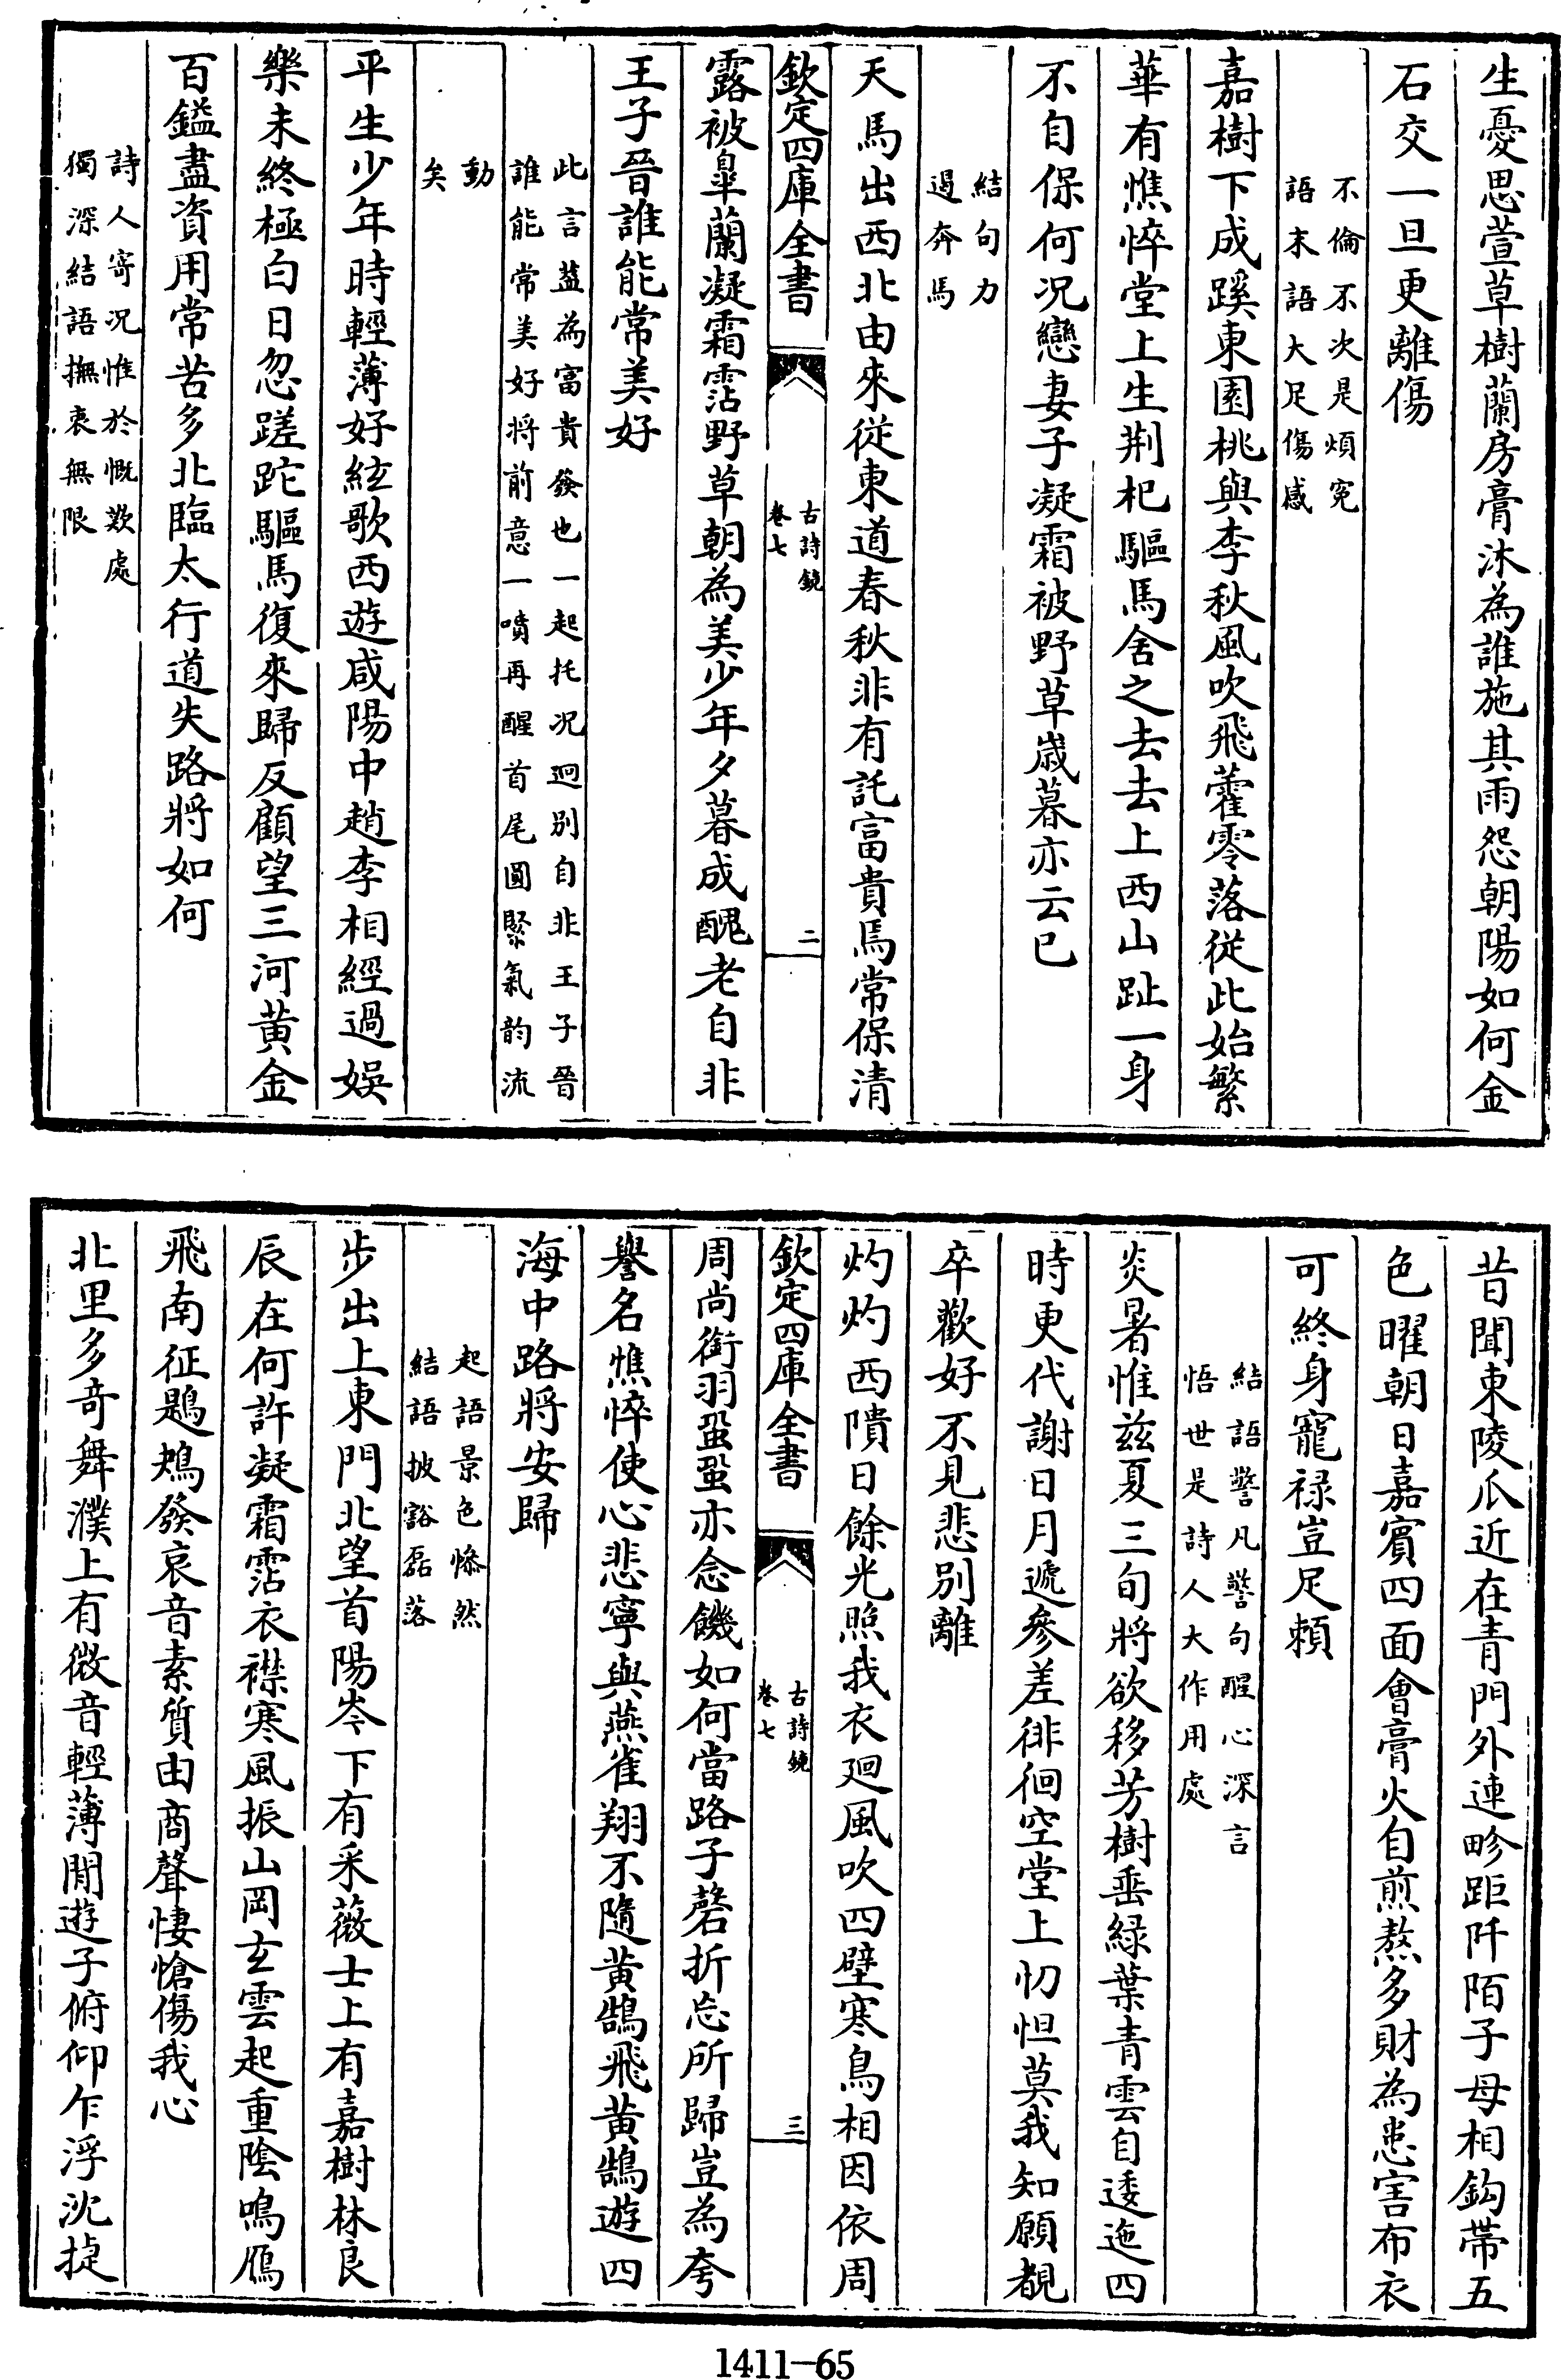 生憂思萱草樹蘭房膏沐為誰施其雨怨朝陽如何金
石交一旦更離傷
不倫不次是煩寃
語末語大足傷感
嘉樹下成蹊東園桃與李秋風吹飛藿零落從此始繁
華有憔悴堂上生荆杞驅馬舍之去去上西山趾一身
不自保何况戀妻子凝霜被野草歳暮亦云已
結句力
遏奔馬
天馬出西北由來從東道春秋非有託富貴焉常保清
欽定四庫全書
古詩鏡
卷七
二
露被臯蘭凝霜霑野草朝為美少年夕暮成醜老自非
王子晉誰能常美好
此言葢為富貴發也一起托况迥别自非王子晉
誰能常美好将前意一噴再醒首尾圓緊氣韵流
動
矣
平生少年時輕薄好絃歌西遊咸陽中趙李相經過娛
樂未終極白日忽蹉跎驅馬復來歸反顧望三河黄金
百鎰盡資用常苦多北臨太行道失路將如何
詩人寄况惟於慨歎處
獨深結語撫衷無限
昔聞東陵瓜近在青門外連畛距阡陌子母相鈎帶五
色曜朝日嘉賓四面會膏火自煎熬多財為患害布衣
可終身寵祿豈足賴
結語警凡警句醒心深言
悟世是詩人大作用處
炎暑惟兹夏三旬將欲移芳樹垂緑葉青雲自逶迤四
時更代謝日月遞參差徘徊空堂上忉怛莫我知願覩
卒歡好不見悲别離
灼灼西隤日餘光照我衣廻風吹四壁寒鳥相因依周
欽定四庫全書
古詩鏡
卷七
三
周尚銜羽蛩蛩亦念饑如何當路子磬折忘所歸豈為夸
譽名憔悴使心悲寧與燕雀翔不隨黄鵠飛黄鵠遊四
海中路將安歸
起語景色慘然
結語披豁磊落
步出上東門北望首陽岑下有采薇士上有嘉樹林良
辰在何許凝霜霑衣襟寒風振山岡玄雲起重陰鳴鴈
飛南征鶗鴂發哀音素質由商聲悽愴傷我心
北里多奇舞濮上有微音輕薄閒遊子俯仰乍浮沈捷
1411—65